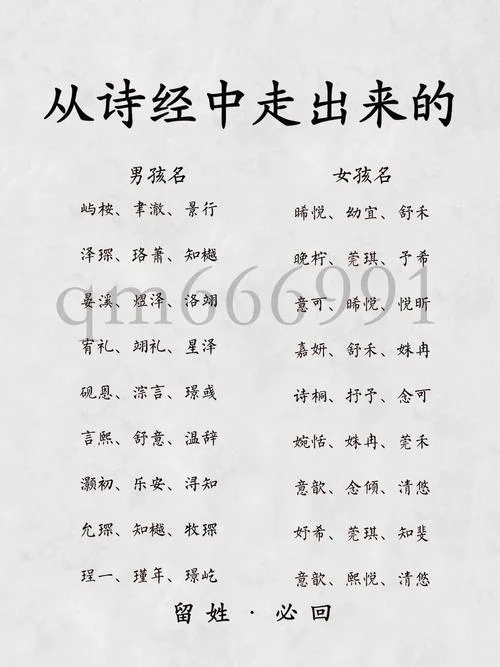 从诗经中走出来的
男孩名 女孩名
屿桉、聿澈、景行 晞悦、幼宜、舒禾
泽琛、珞萧、知樾 晚柠、莞琪、予希
qm666991
晏溪、煜泽、洛翊 意可、晞悦、悦昕
宥礼、翊礼、星泽 嘉妍、舒禾、姝冉
砚恩、淙言、璟彧 诗桐、抒予、念可
言熙、舒意、温辞 婉恬、姝冉、莞禾
灏初、乐安、浔知 意歆、念倾、清悠
允琛、知樾、牧琛 妤希、莞琪、知斐
珵一、瑾年、璟屹 意歆、熙悦、清悠
留姓·必回